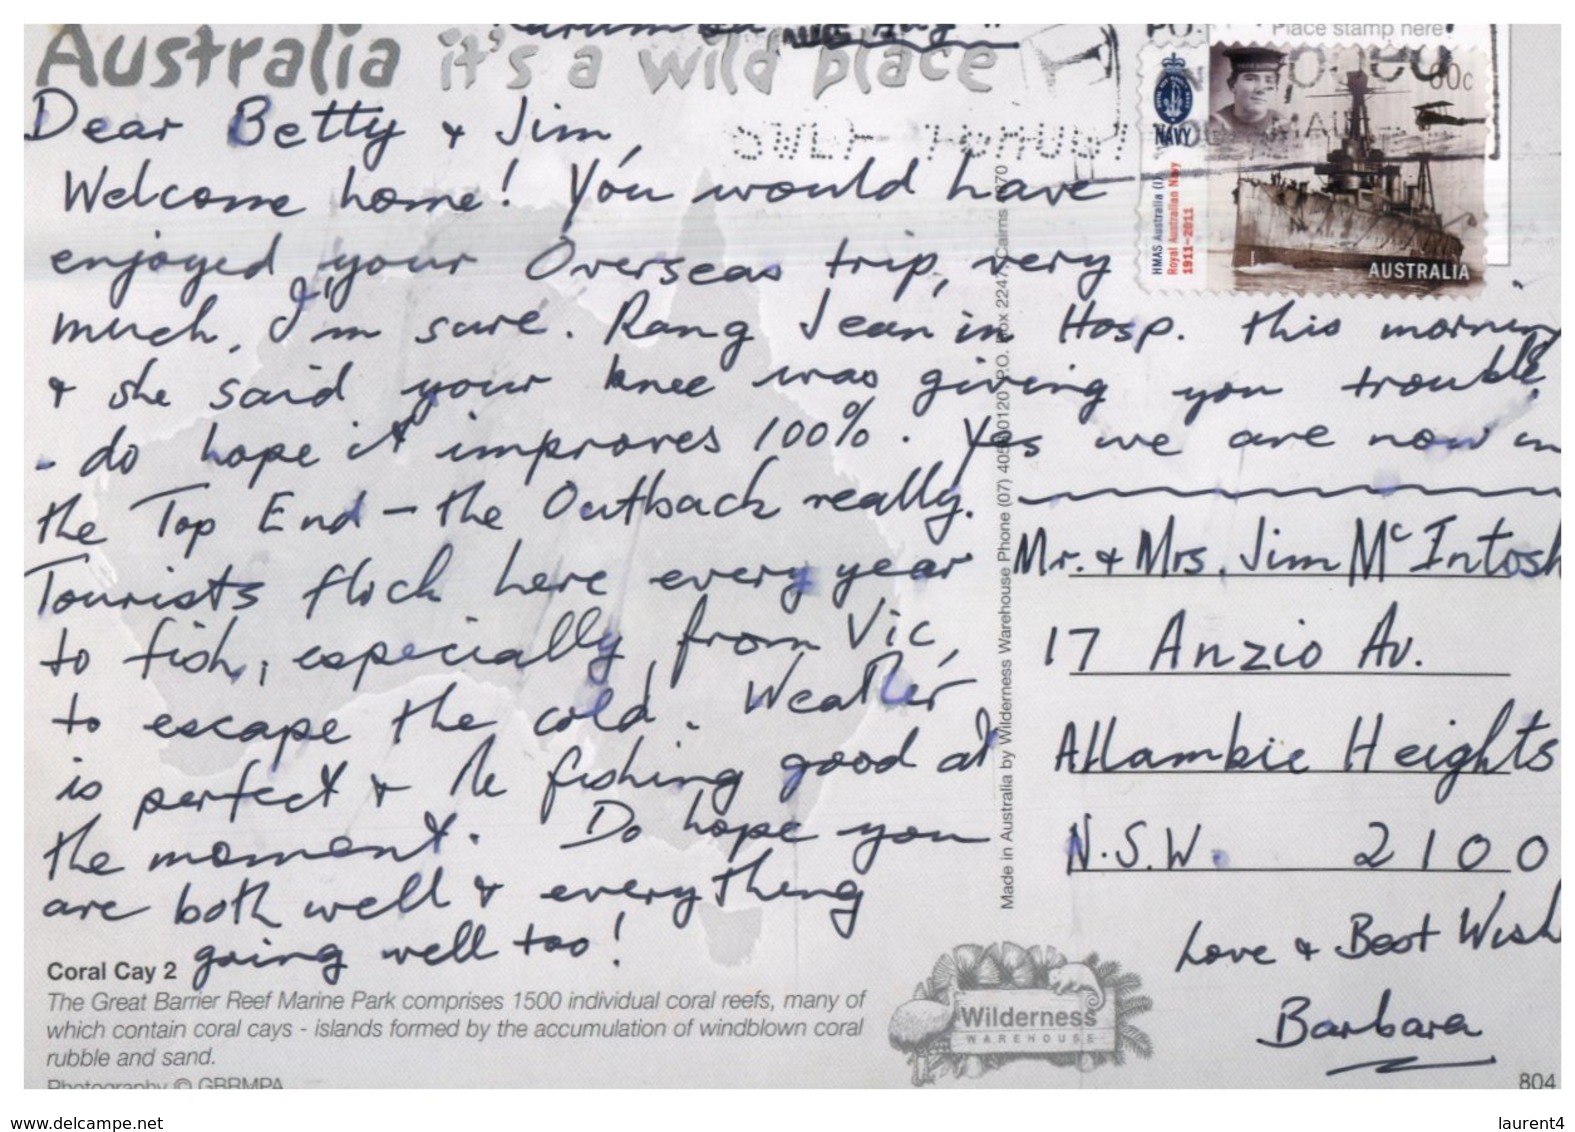 Australia it's a wild place
Place stamp here
60c
NAVY
HMAS Australia (I)
Royal Australian Navy
1911-2011
AUSTRALIA
Dear Betty & Jim,
Welcome home! You would have
enjoyed your Overseas trip, very
much, I'm sure. Rang Jean in Hosp. this mornin
& she said your knee was giving you trouble
- do hope it improves 100%. Yes we are now in
the Top End - the Outback really.
Tourists flock here every year
to fish, especially from Vic,
to escape the cold. Weather
is perfect & the fishing good at
the moment. Do hope you
are both well & everything
going well too!
Mr. & Mrs. Jim McIntosh
17 Anzio Av.
Allambie Heights
N.S.W. 2100
Love & Best Wish
Barbara
Made in Australia by Wilderness Warehouse Phone (07) P.O. Box 2247, Cairns
Coral Cay 2
The Great Barrier Reef Marine Park comprises 1500 individual coral reefs, many of
which contain coral cays - islands formed by the accumulation of windblown coral
rubble and sand.
Photography © GBRMPA
Wilderness
WAREHOUSE
804
www.delcampe.net
laurent4